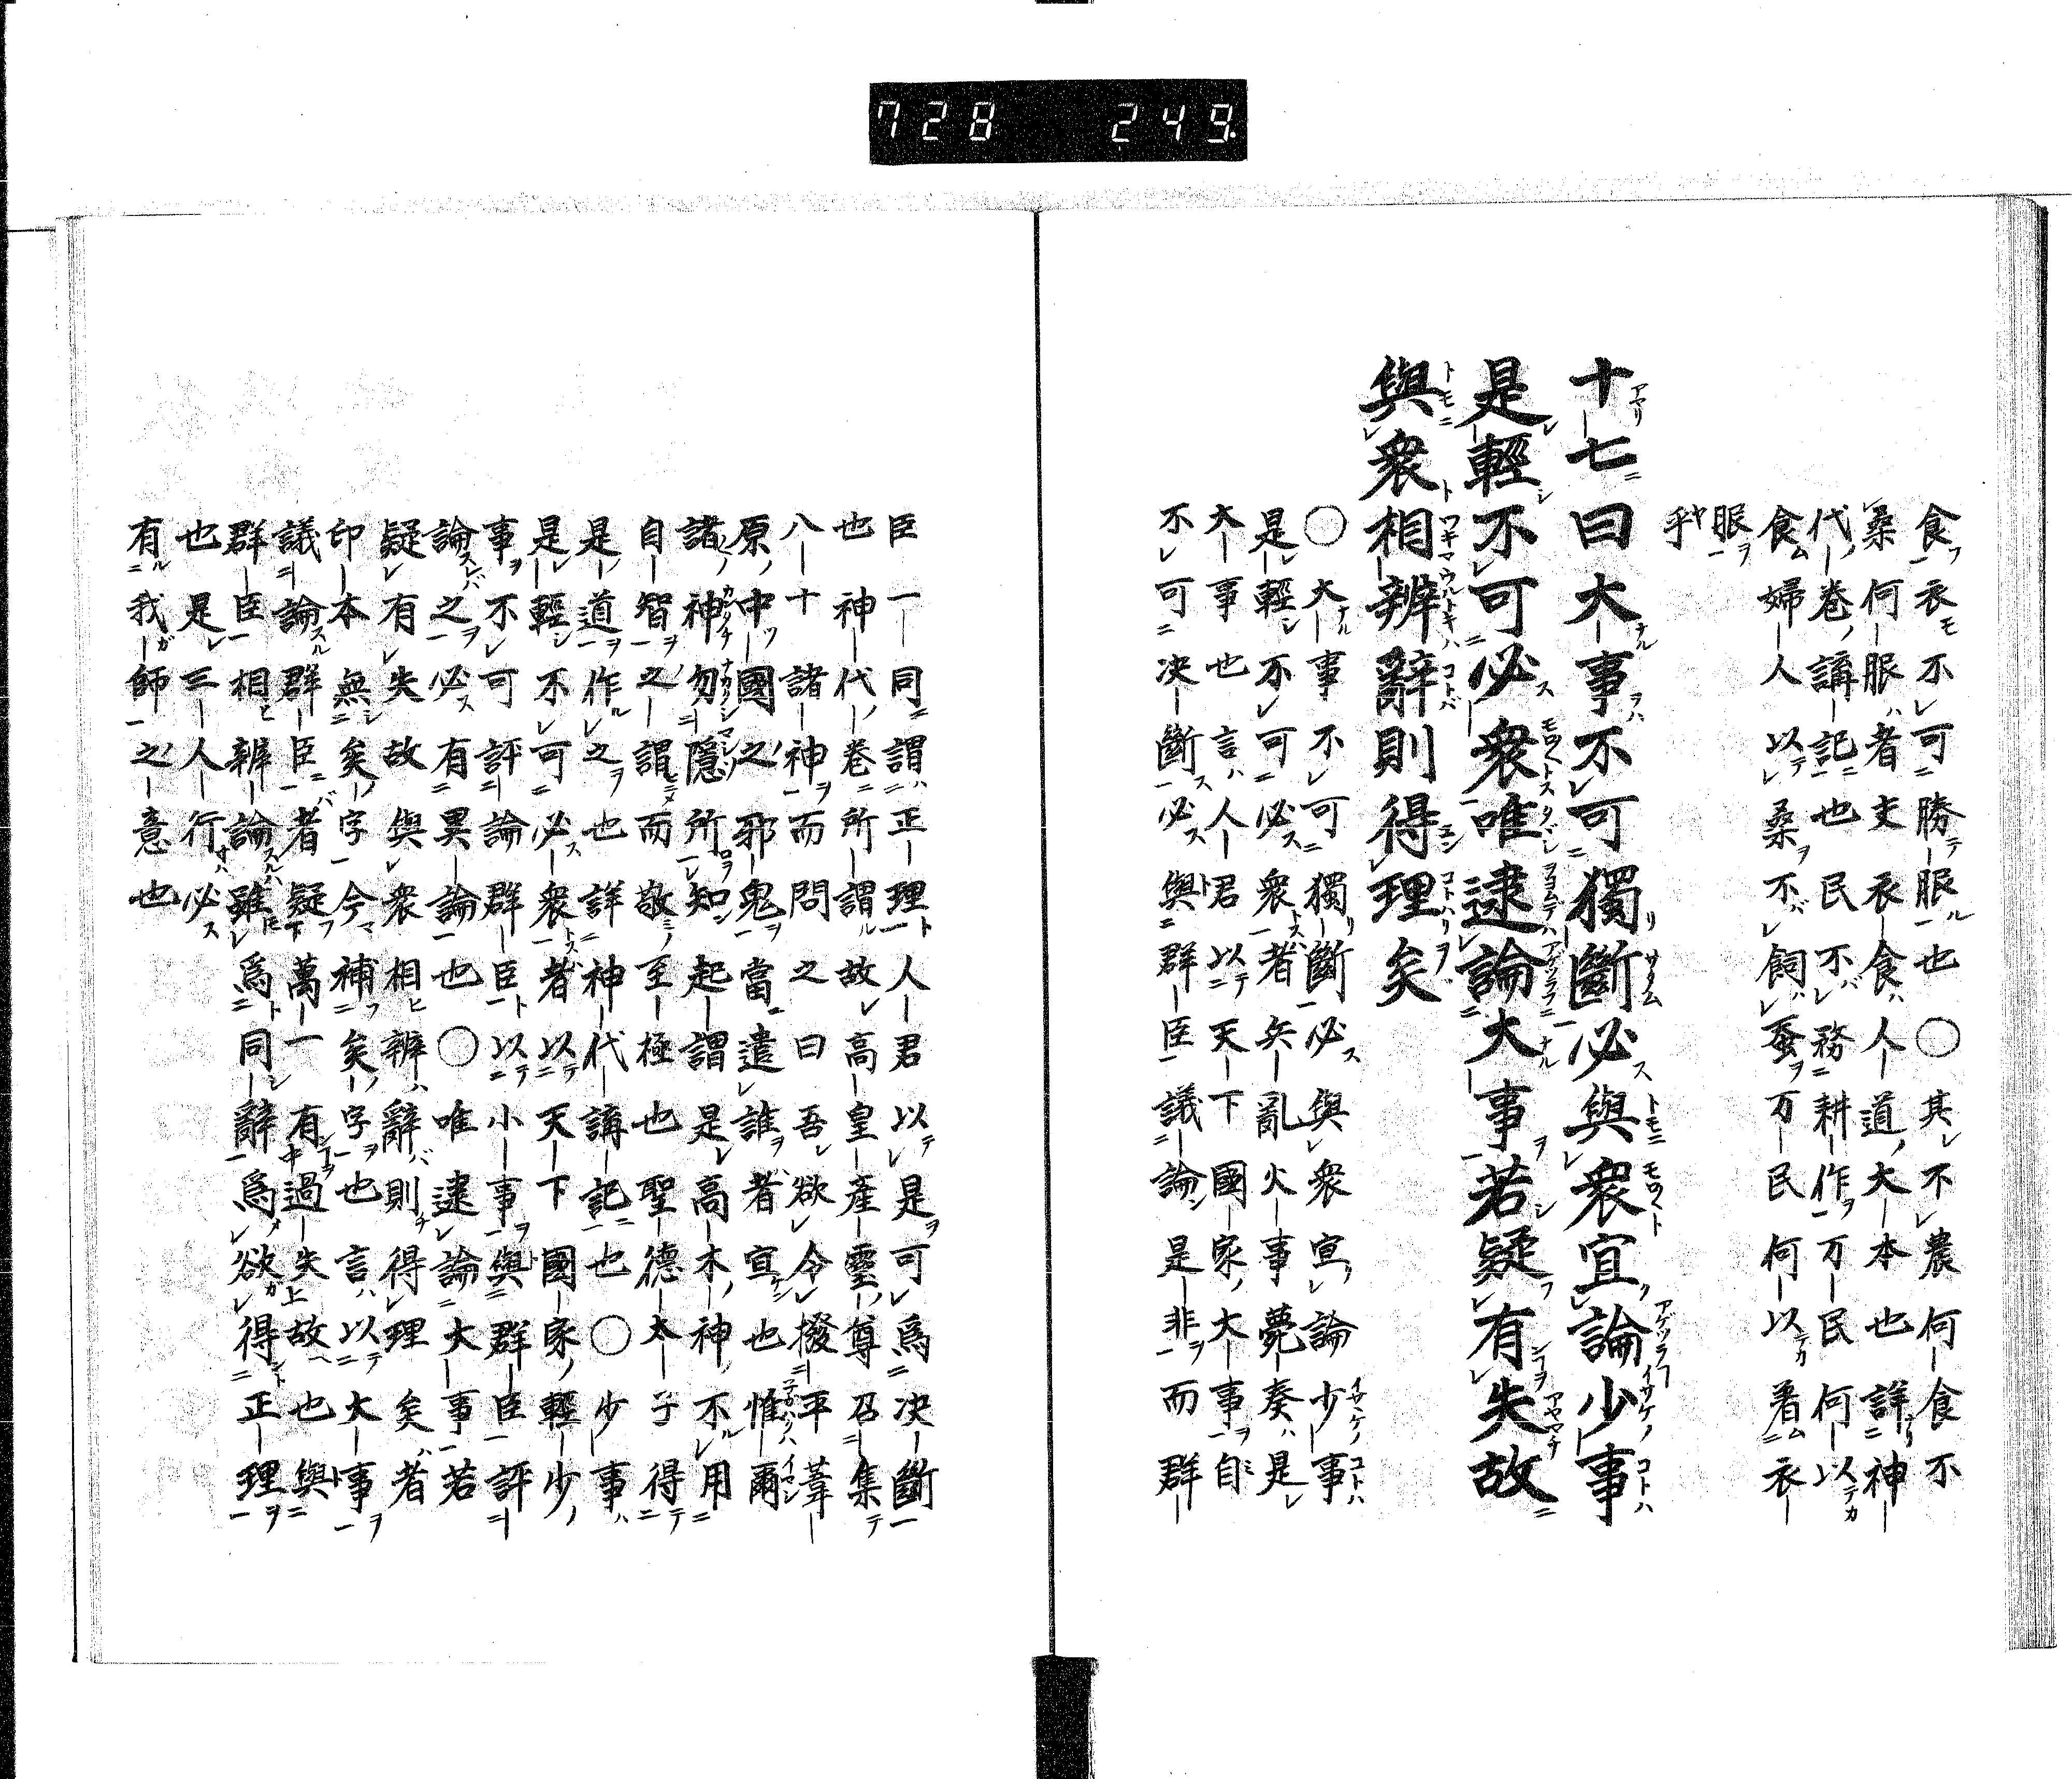 728 249.
食衣不可勝服也○其不農何食不
桑何服者支衣食人道大本也詳神
代巻講記也民不務耕作万民何以
食婦人以桑不飼蚕万民何以着衣
服乎
十七曰大事不可獨斷必與衆宜論少事
是輕不可必衆唯逮論大事若疑有失故
與衆相辨辭則得理矣
○大事不可獨斷必與衆宜論少事
是輕不可必衆者兵亂火事薨奏是
大事也言人君以天下國家大事自
不可决斷必與群臣議論是非而群
臣一同謂正理人君以是可為决斷
也神代巻所謂故高皇產靈尊召集
八十諸神而問之曰吾欲令撥平葦
原中國之邪鬼當遣誰者宜也惟爾
諸神勿隱所知起謂是高木神不用
自智之謂而敬至極也聖德太子得
是道作之也詳神代講記也○少事
是輕不可必衆者以天下國家輕少
事不可評論群臣以小事與群臣評
論之必有異論也○唯逮論大事若
疑有失故與衆相辨辭則得理矣者
印本無矣字今補矣字也言以大事
議論群臣者疑萬一有過失故也與
群臣相辨論雖為同辭為欲得正理
也是三人行必
有我師之意也